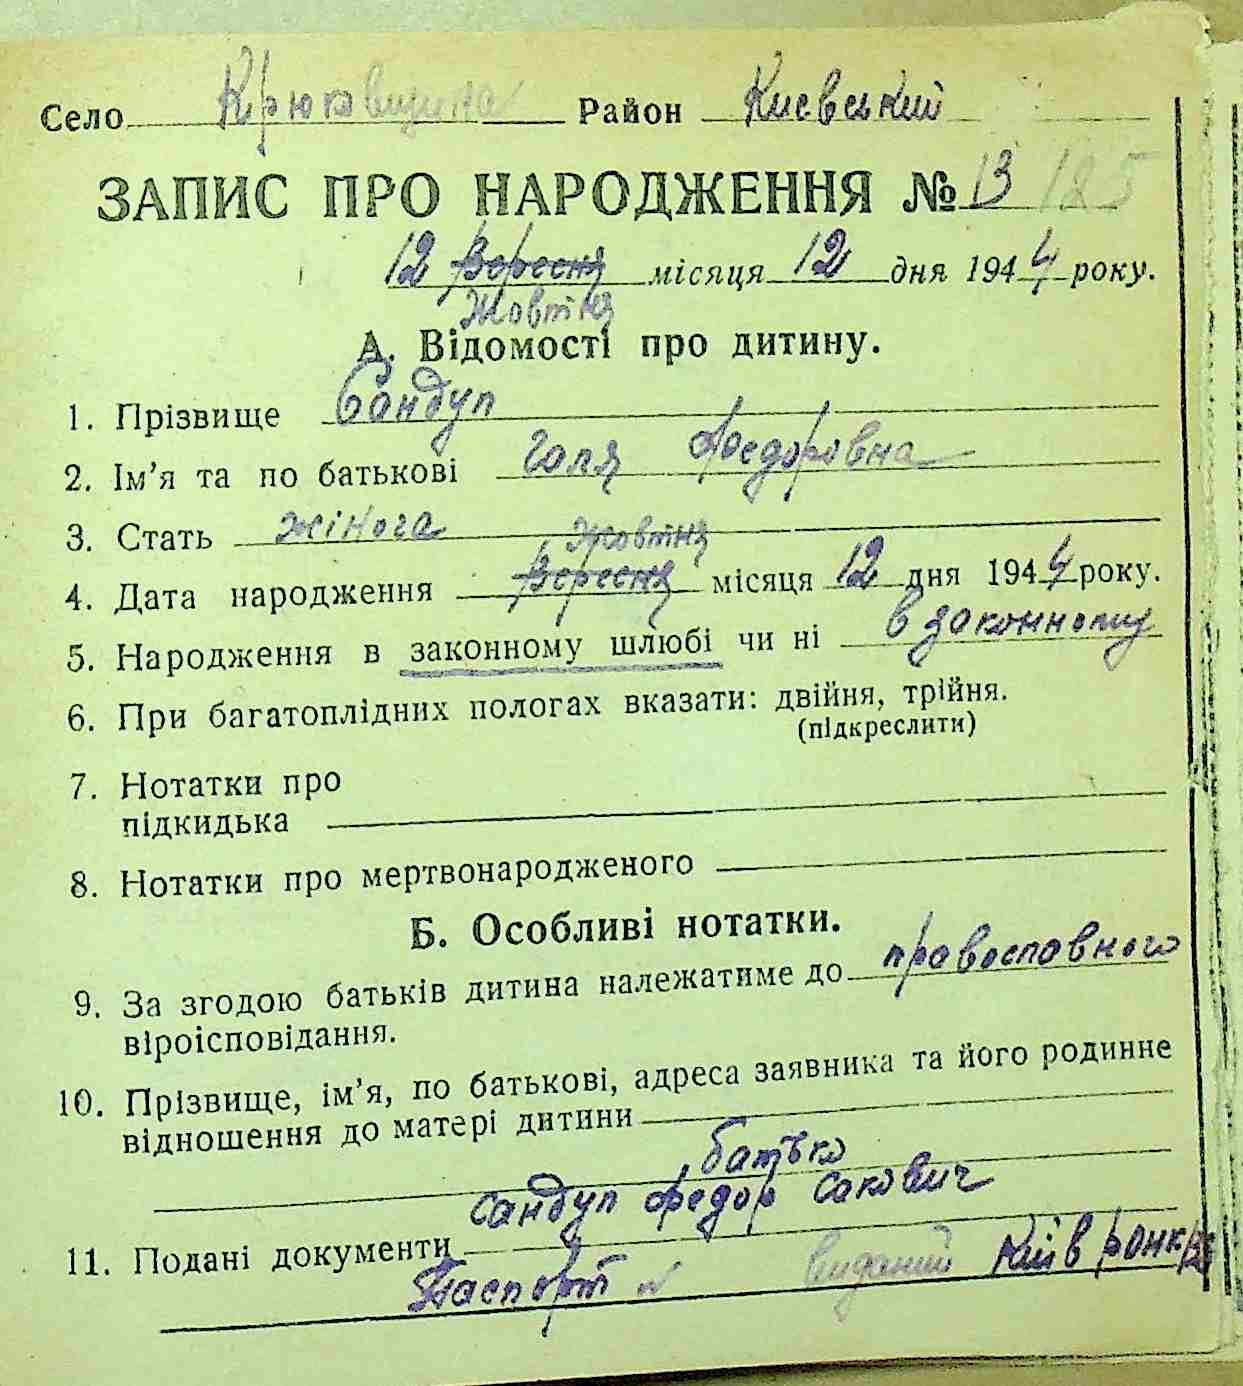 Село Крюковщина Район Києвський
ЗАПИС ПРО НАРОДЖЕННЯ № 13 125
12 Вересня місяця 12 дня 1944 року.
Жовтня
А. Відомості про дитину.
1. Прізвище Сандул
2. Ім'я та по батькові Галя Федоровна
3. Стать жіноча
Жовтня
4. Дата народження Вересня місяця 12 дня 1944 року.
5. Народження в законному шлюбі чи ні в законному
6. При багатоплідних пологах вказати: двійня, трійня.
(підкреслити)
7. Нотатки про
підкидька
8. Нотатки про мертвонародженого
Б. Особливі нотатки.
9. За згодою батьків дитина належатиме до православного
віроісповідання.
10. Прізвище, ім'я, по батькові, адреса заявника та його родинне
відношення до матері дитини
батько
Сандул Федор Сакович
11. Подані документи
Паспорт № виданий Київ